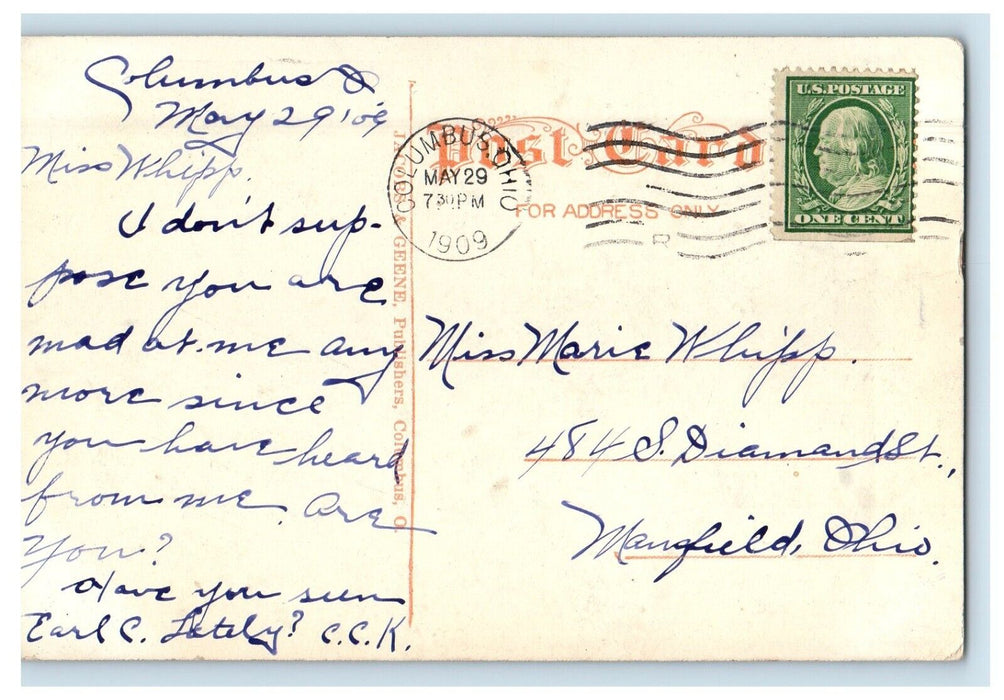 Columbus O
May 29 '09
Miss Whipp.
I don't sup-
pose you are
mad at me any
more since
you have heard
from me. Are
you?
Have you seen
Earl C. Lately? C.C.K.
JACOBS & GEENE, Publishers, Columbus, O.
Post Card
FOR ADDRESS ONLY
COLUMBUS, OHIO
MAY 29
7 30 PM
1909
R
U.S. POSTAGE
ONE CENT
Miss Marie Whipp.
484 S. Diamand St.,
Mansfield, Ohio.